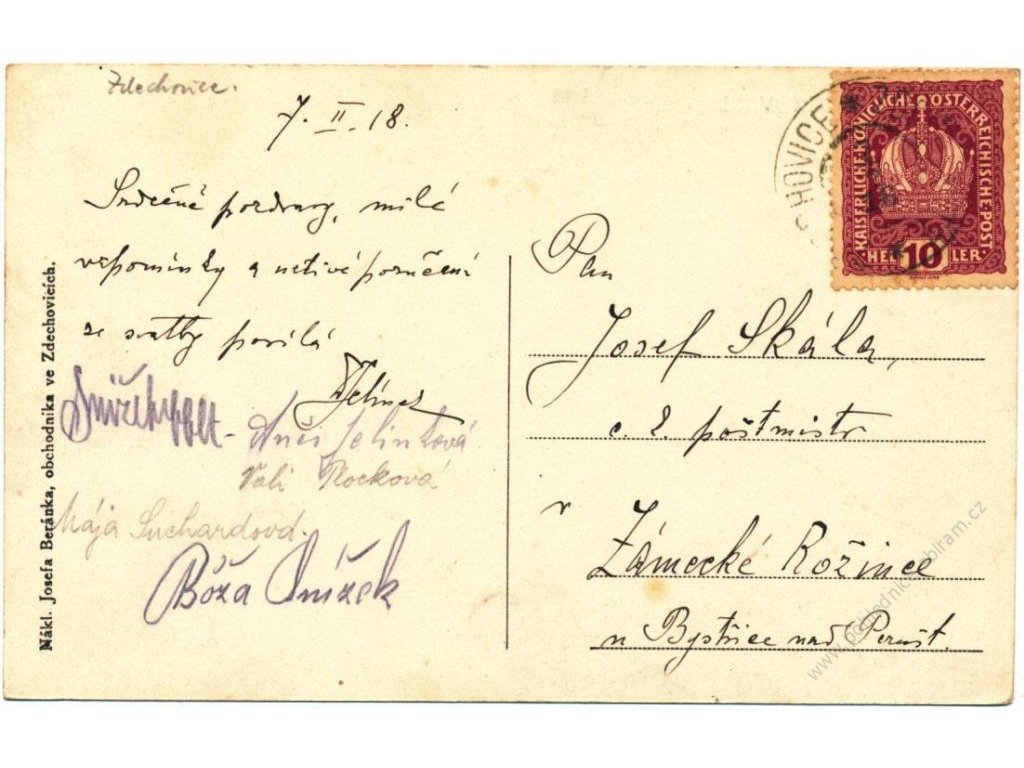 Zdechovice.
7. II. 18.
Srdečné pozdravy, milé
vzpomínky a uctivé poručení
ze svatby posílá
Jelínek
Anči Jelínková
Vali Plocková
Mája Suchardová.
Bóža Snížek
Nákl. Josefa Beránka, obchodníka ve Zdechovicích.
HOVICE
KAISERLICHE KÖNIGLICHE ÖSTERREICHISCHE POST
HELLER
10
Pan
Josef Skála,
c. k. poštmistr
v
Zámecké Rožince
u Bystřice nad Pernšt.
www.pohlednice-sbiram.cz